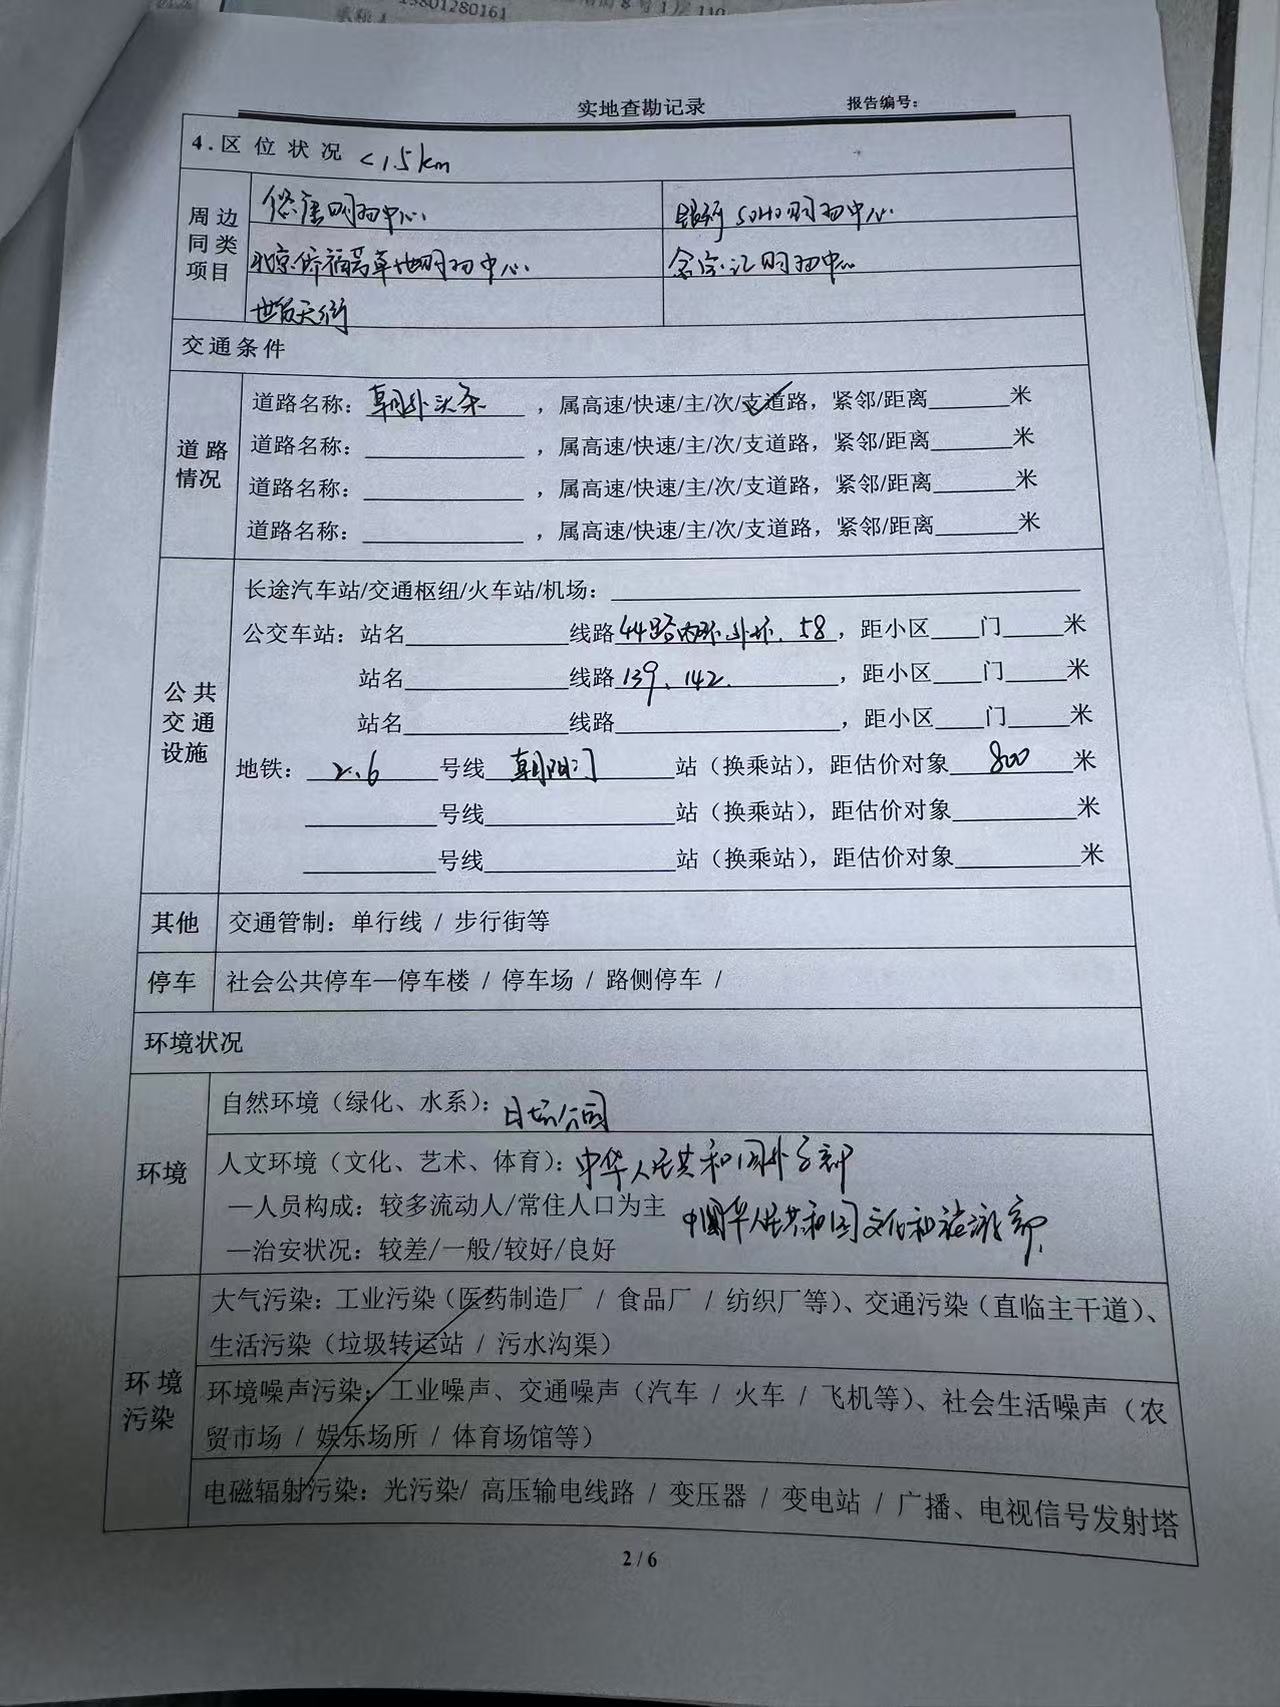 13801280161
实地查勘记录 报告编号：
4.区位状况 <1.5km
周边同类项目
悠唐购物中心 银河SOHO购物中心
北京侨福芳草地购物中心 购物中心
世贸天街
交通条件
道路情况
道路名称：朝外头条，属高速/快速/主/次/支道路，紧邻/距离______米
道路名称：____________，属高速/快速/主/次/支道路，紧邻/距离______米
道路名称：____________，属高速/快速/主/次/支道路，紧邻/距离______米
道路名称：____________，属高速/快速/主/次/支道路，紧邻/距离______米
公共交通设施
长途汽车站/交通枢纽/火车站/机场：____________
公交车站：站名____________线路44路内环外环、58，距小区____门_____米
站名____________线路139、142、，距小区____门_____米
站名____________线路____________，距小区____门_____米
地铁：2、6号线朝阳门站（换乘站），距估价对象800米
__________号线____________站（换乘站），距估价对象_________米
__________号线____________站（换乘站），距估价对象_________米
其他 交通管制：单行线 / 步行街等
停车 社会公共停车—停车楼 / 停车场 / 路侧停车 /
环境状况
环境
自然环境（绿化、水系）：日坛公园
人文环境（文化、艺术、体育）：中华人民共和国外交部
—人员构成：较多流动人/常住人口为主 中国华人民共和国文化和旅游部
—治安状况：较差/一般/较好/良好
环境污染
大气污染：工业污染（医药制造厂 / 食品厂 / 纺织厂等）、交通污染（直临主干道）、
生活污染（垃圾转运站 / 污水沟渠）
环境噪声污染：工业噪声、交通噪声（汽车 / 火车 / 飞机等）、社会生活噪声（农
贸市场 / 娱乐场所 / 体育场馆等）
电磁辐射污染：光污染/ 高压输电线路 / 变压器 / 变电站 / 广播、电视信号发射塔
2 / 6